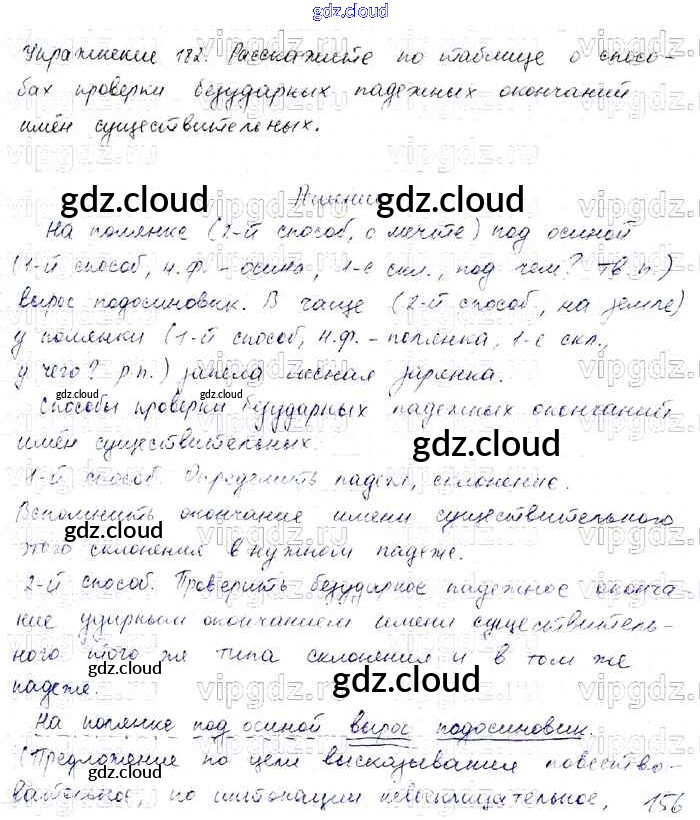 gdz.cloud
Упражнение 182. Расскажите по таблице о спосо-
бах проверки безударных падежных окончаний
имён существительных.
Решение
На полянке (2-й способ, о мечте) под осиной
(1-й способ, н.ф. - осина, 1-е скл., под чем? Тв.п.)
вырос подосиновик. В чаще (2-й способ, на земле)
у полянки (1-й способ, н.ф. - полянка, 1-е скл.,
у чего? р.п.) запела лесная зарянка.
Способы проверки безударных падежных окончаний
имён существительных.
1-й способ. Определить падеж, склонение.
Вспомнить окончание имени существительного
этого склонения в нужном падеже.
2-й способ. Проверить безударное падежное оконча-
ние ударным окончанием имени существитель-
ного того же типа склонения и в том же
падеже.
На полянке под осиной вырос подосиновик.
(Предложение по цели высказывания повество-
вательное, по интонации невосклицательное,
156